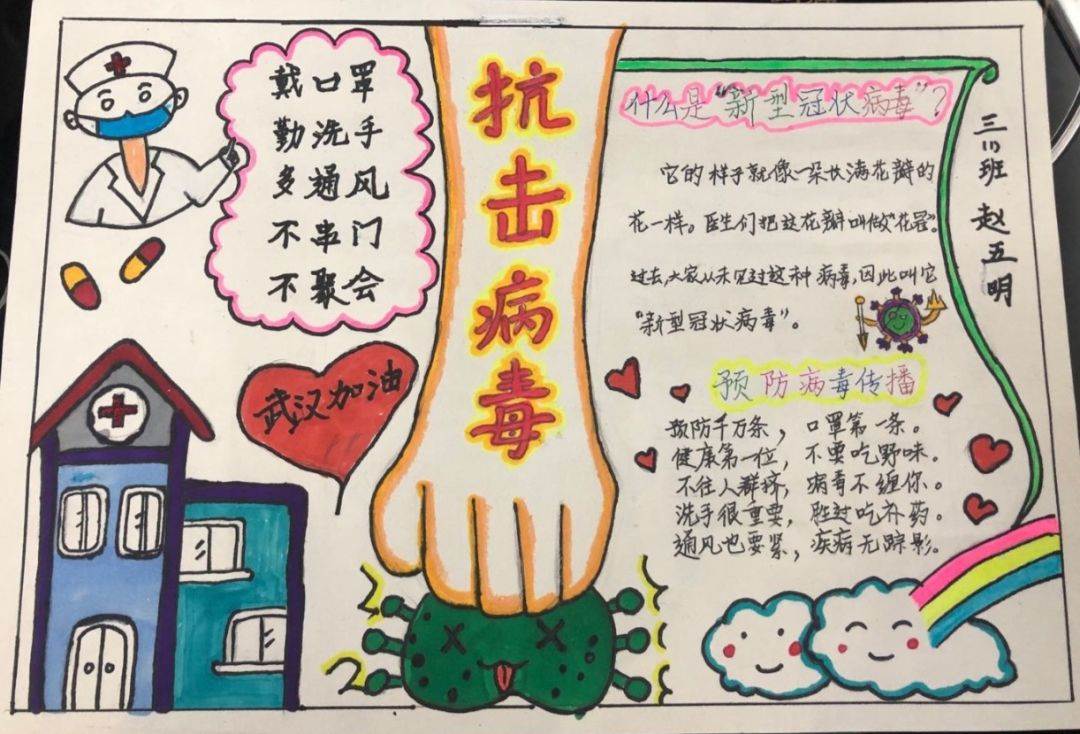 戴口罩
勤洗手
多通风
不串门
不聚会
武汉加油
抗击病毒
什么是“新型冠状病毒”？
它的样子就像一朵长满花瓣的
花一样。医生们把这花瓣叫做“花冠”。
过去,大家从未见过这种病毒,因此叫它
“新型冠状病毒”。
预防病毒传播
预防千万条，口罩第一条。
健康第一位，不要吃野味。
不往人群挤，病毒不缠你。
洗手很重要，胜过吃补药。
通风也要紧，疾病无踪影。
三(1)班 赵五明